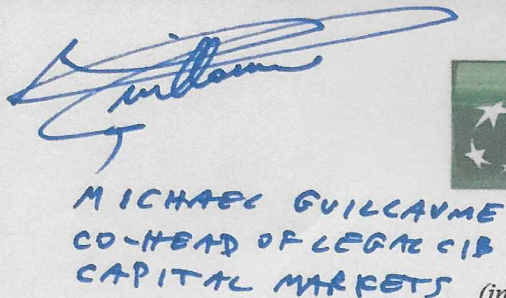 Guillaume
MICHAEL GUILLAUME
CO-HEAD OF LEGAL CIB
CAPITAL MARKETS (in